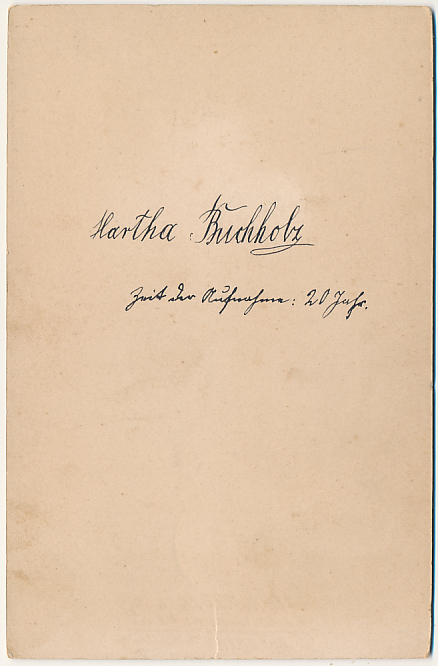 Martha Buchholz
Zeit der Aufnahme: 20 Jahr.